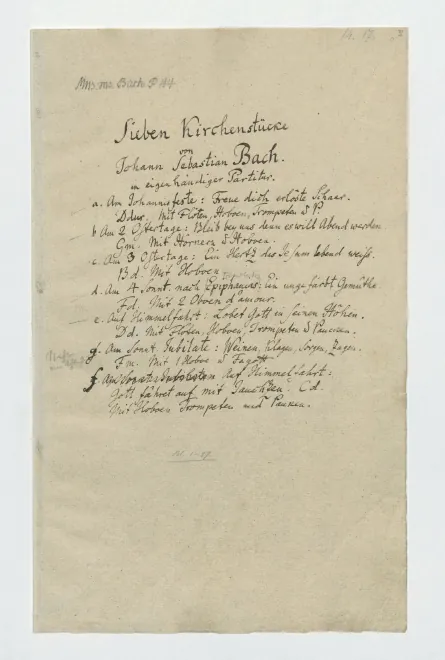 Mus. ms. Bach P 44
Sieben Kirchenstücke
von
Johann Sebastian Bach.
in eigenhändiger Partitur.
a. Am Johannisfeste: Freue dich erlöste Schaar.
Ddur. Mit Flöten, Hoboen, Trompeten u P.
b Am 2 Ostertage: Bleib bey uns denn es will Abend werden
Gm. Mit Hörnern u Hoboen.
c. Am 3 Ostertage: Ein Hertz das Jesum lebend weiß.
Bd. Mit Hoboen
d. Am 4 Sonnt. nach Epiphanius: Ein ungefärbt Gemüthe.
Fd. Mit 2 Oboen d'amour.
e. Auf Himmelfahrt: Lobet Gott in seinen Höhen.
Dd. Mit Flöten, Hoboen, Trompeten u Paucken.
g. Am Sonnt. Jubilate: Weinen, Klagen, Sorgen, Zagen.
Fm. Mit 1 Hoboe u Fagott
f. Am Auf Himmelfahrt:
Gott fähret auf mit Jauchzen. Cd.
Mit Hoboen Trompeten und Paucken.